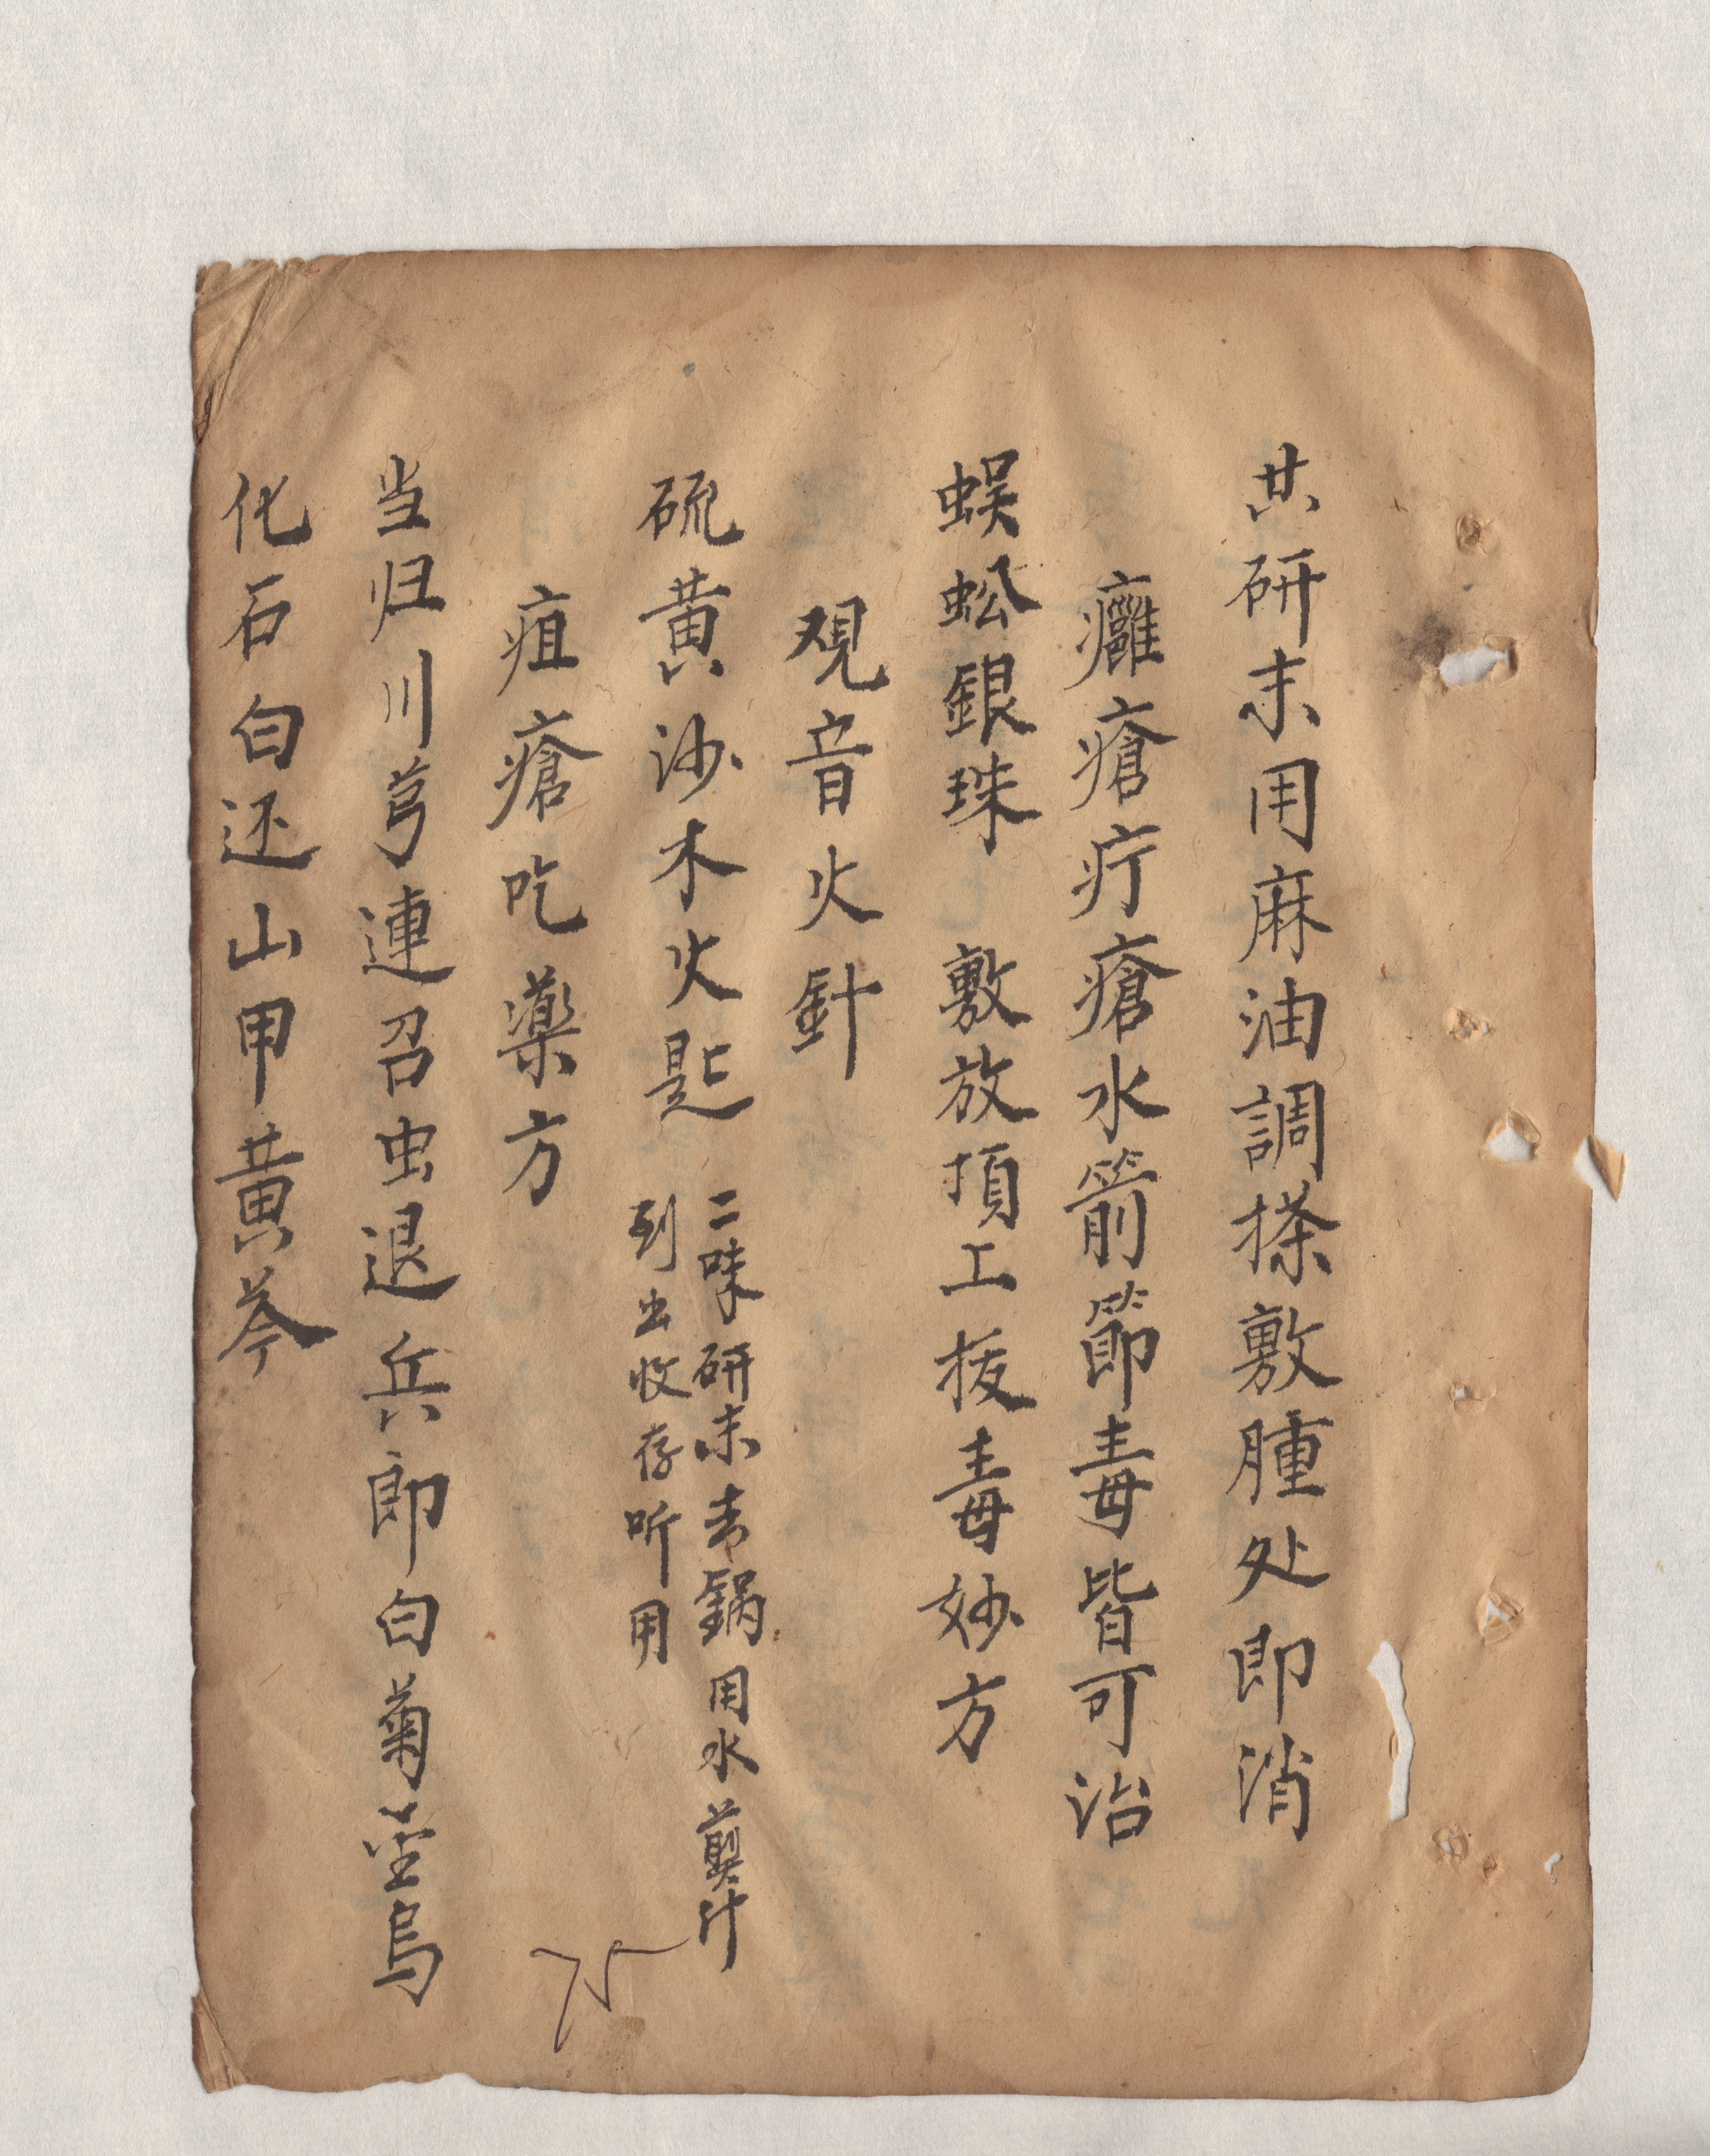 共研末用麻油調搽敷腫处即消
癰瘡疔瘡水箭節毒皆可治
蜈蚣銀珠 敷放頂工拔毒妙方
观音火針
硫黄沙木火匙 二味研末去鍋用水煎汁
到出收存听用
疽瘡吃藥方
当归川芎連召虫退兵郎白菊烏
化石白还山甲黄芩
75